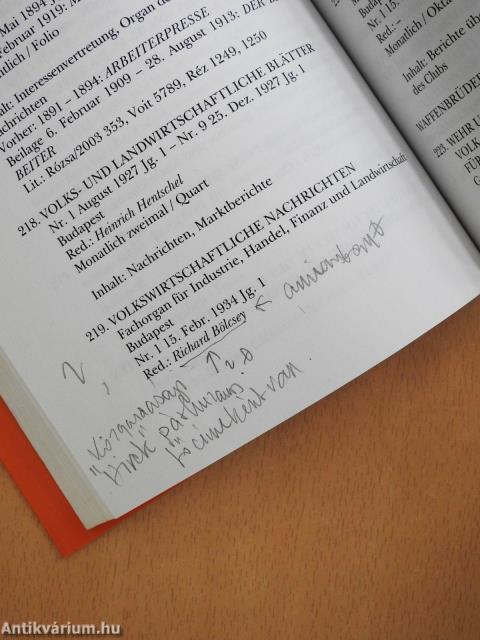 Mai 1894 J
Februar 1919: M
ntlich / Folio
alt: Interessenvertretung, Organ de
achrichten
Vorher: 1891 – 1894: ARBEITERPRESSE
Beilage 6. Februar 1909 – 28. August 1913: DER B
BEITER
Lit.: Rózsa/2003 353, Voit 5789, Réz 1249, 1250
218. VOLKS- UND LANDWIRTSCHAFTLICHE BLÄTTER
Nr. 1 August 1927 Jg 1 – Nr. 9 25. Dez. 1927 Jg 1
Budapest
Red.: Heinrich Hentschel
Monatlich zweimal / Quart
Inhalt: Nachrichten, Marktberichte
219. VOLKSWIRTSCHAFTLICHE NACHRICHTEN
Fachorgan für Industrie, Handel, Finanz und Landwirtschaft
Budapest
Nr. 1 15. Febr. 1934 Jg. 1
Red.: Richard Bölcsey ←
Nr. 1 15
Red.: –
Monatlich / Okta
Inhalt: Berichte übe
des Clubs
WAFFENBRÜDER
223. WEHR U
VOLK
FÜR
G
Antikvárium.hu